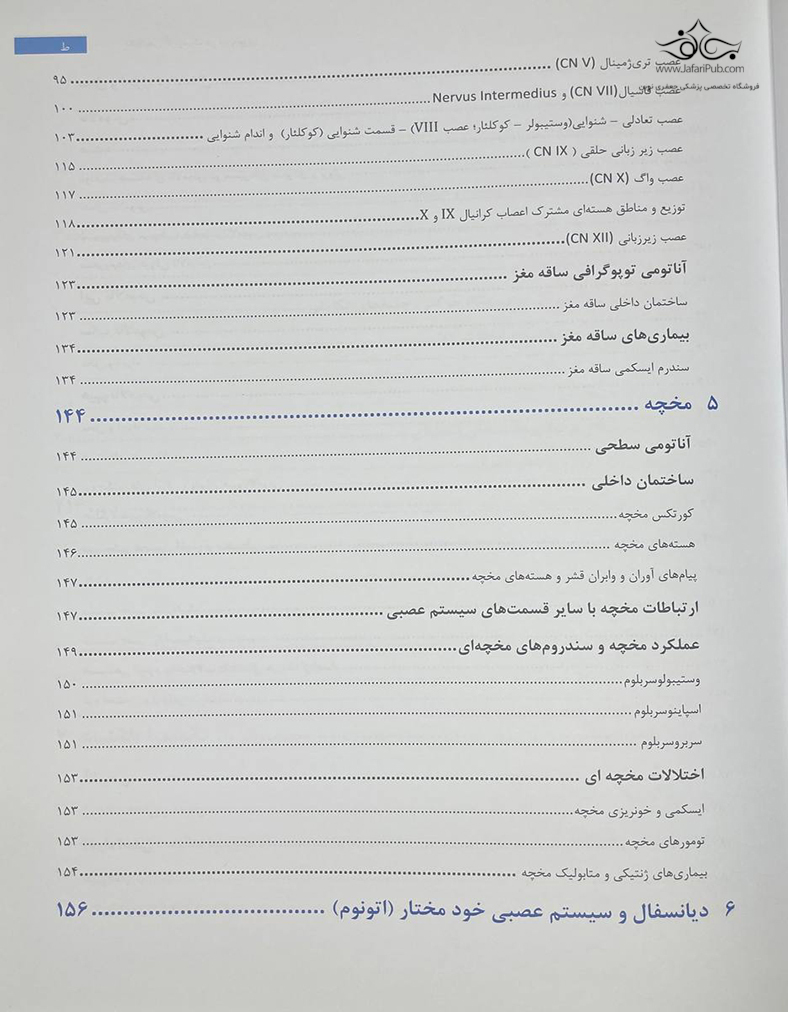 ط
www.JafariPub.com
فروشگاه تخصصی پزشکی جعفری نوین
عصب تری‌ژمینال (CN V) ۹۵
عصب فاسیال(CN VII) و Nervus Intermedius ۱۰۰
عصب تعادلی – شنوایی(وستیبولر – کوکلئار؛ عصب VIII) – قسمت شنوایی (کوکلئار) و اندام شنوایی ۱۰۳
عصب زیر زبانی حلقی ( CN IX ) ۱۱۵
عصب واگ (CN X) ۱۱۷
توزیع و مناطق هسته‌ای مشترک اعصاب کرانیال IX و X ۱۱۸
عصب زیرزبانی (CN XII) ۱۲۱
آناتومی توپوگرافی ساقه مغز ۱۲۳
ساختمان داخلی ساقه مغز ۱۲۳
بیماری‌های ساقه مغز ۱۳۴
سندرم ایسکمی ساقه مغز ۱۳۴
۵ مخچه ۱۴۴
آناتومی سطحی ۱۴۴
ساختمان داخلی ۱۴۵
کورتکس مخچه ۱۴۵
هسته‌های مخچه ۱۴۶
پیام‌های آوران و وابران قشر و هسته‌های مخچه ۱۴۷
ارتباطات مخچه با سایر قسمت‌های سیستم عصبی ۱۴۷
عملکرد مخچه و سندروم‌های مخچه‌ای ۱۴۹
وستیبولوسربلوم ۱۵۰
اسپاینوسربلوم ۱۵۱
سربروسربلوم ۱۵۱
اختلالات مخچه ای ۱۵۳
ایسکمی و خونریزی مخچه ۱۵۳
تومورهای مخچه ۱۵۳
بیماری‌های ژنتیکی و متابولیک مخچه ۱۵۴
۶ دیانسفال و سیستم عصبی خود مختار (اتونوم) ۱۵۶